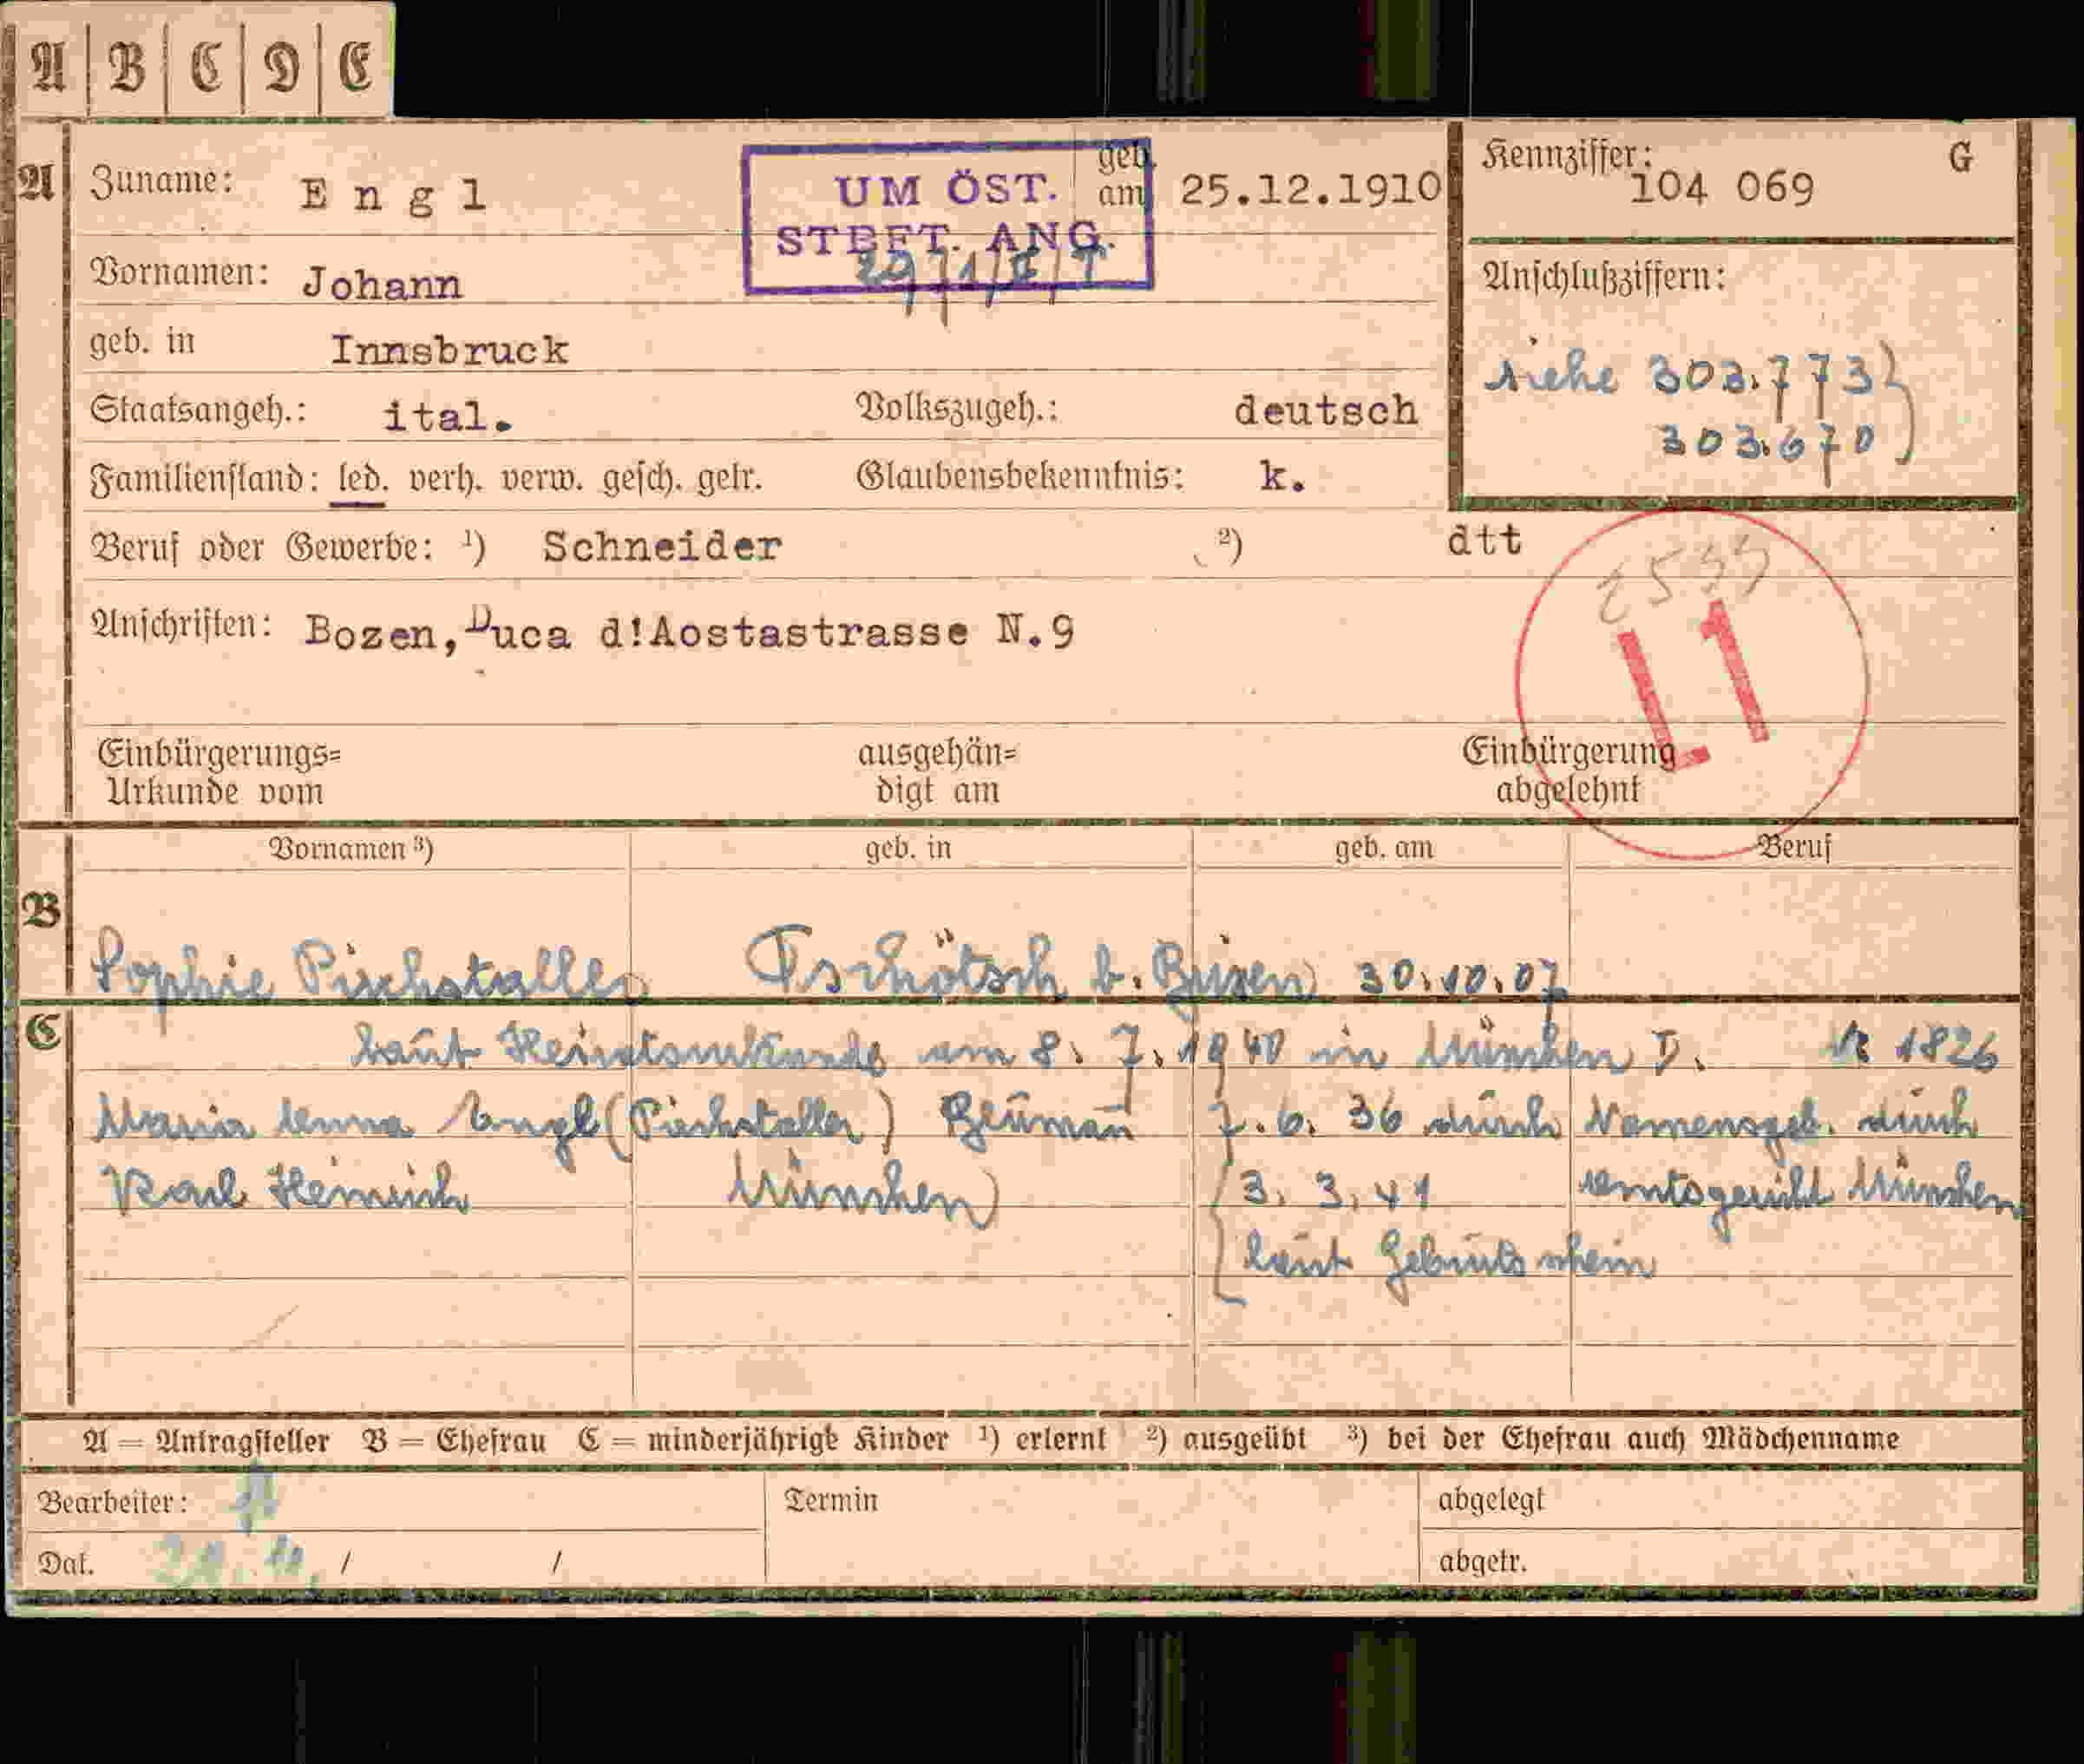 A B C D E
A Zuname: Engl geb. am 25.12.1910 Kennziffer: 104 069 G
UM ÖST.
STBFT. ANG.
Vornamen: Johann Anschlußziffern:
geb. in Innsbruck siehe 303.773
303.670
Staatsangeh.: ital. Volkszugeh.: deutsch
Familienstand: led. verh. verw. gesch. getr. Glaubensbekenntnis: k.
Beruf oder Gewerbe: ¹) Schneider ²) dtt
L1
Anschriften: Bozen, Duca d!Aostastrasse N.9
Einbürgerungs= ausgehän= Einbürgerung
Urkunde vom digt am abgelehnt
Vornamen ³) geb. in geb. am Beruf
B Sophie Pischstaller Tschötsch b. Brixen 30.10.07
C laut Heiratsurkunde am 8.7.1940 in München I. 1826
Maria Anna Engl (Pischstaller) 7.6.36 durch Namensgeb. durch
Karl Heinrich München 3.3.41 Amtsgericht München
laut Geburtsschein
A = Antragsteller B = Ehefrau C = minderjährige Kinder ¹) erlernt ²) ausgeübt ³) bei der Ehefrau auch Mädchenname
Bearbeiter: Termin abgelegt
Dat. / / abgetr.